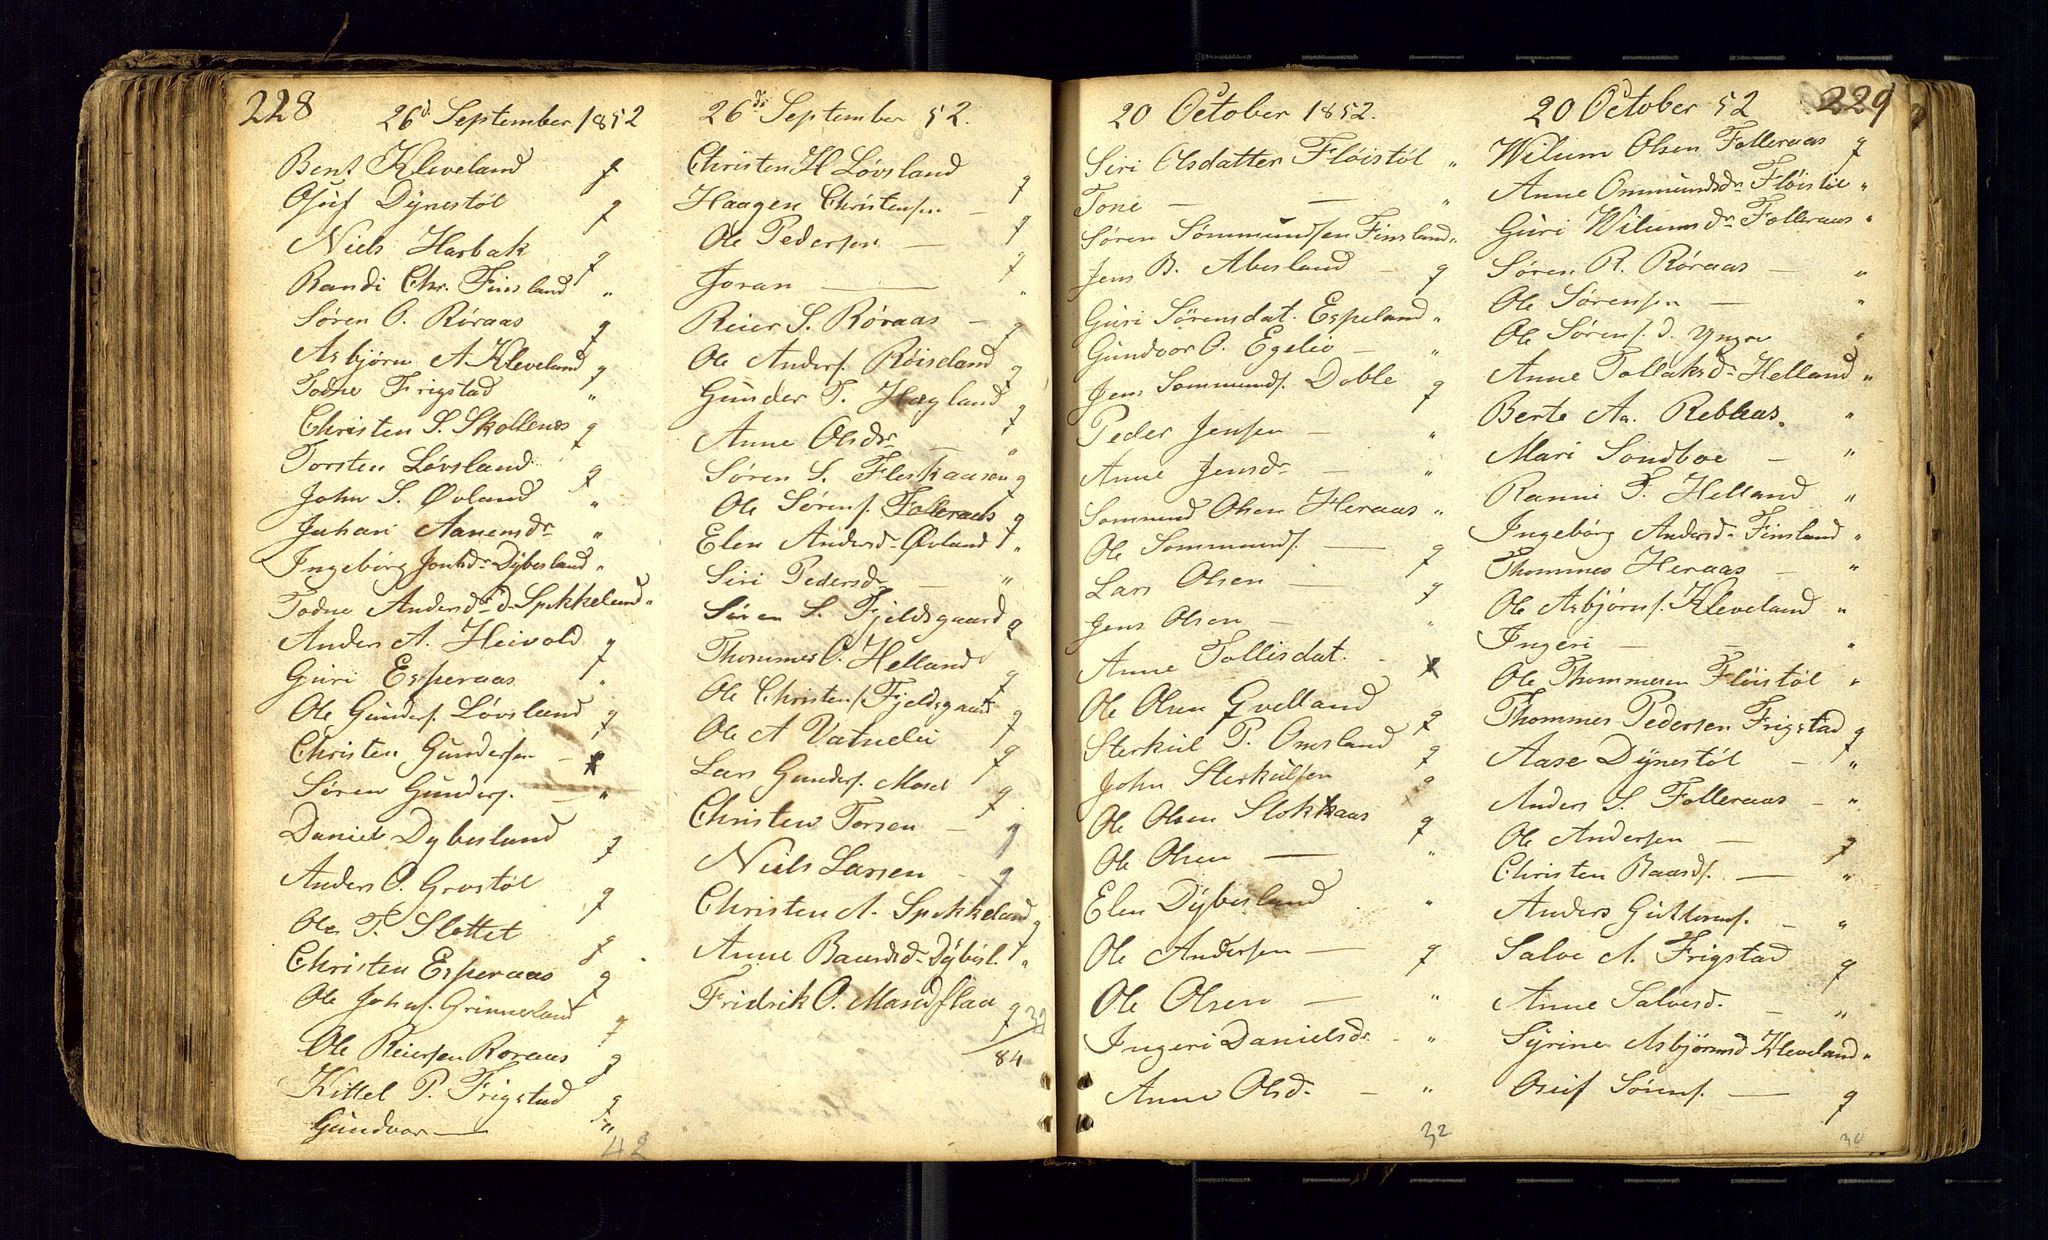 228
26d September 1852
Bent Kleveland g
Osuf Dÿnestøl g
Niels Harbak g
Randi Chr. Finsland "
Søren O. Røraas g
Asbjørn A. Kleveland g
Todne Frigstad "
Christen S. Skollenes g
Torsten Løvsland g
John S. Øvland "
Juhani Aanensdr "
Ingebørg Jonhdr Dÿbesland "
Todne Andersdr d. Spekkeland "
Anders A. Heivold g
Guri Esperaas "
Ole Gunders. Løvsland g
Christen Gundersen — g
Søren Gunders. — "
Daniel Dybesland g
Anders O. Grostøl g
Ole T. Slottet g
Christen Esperaas g
Ole Johns. Grinnerland g
Ole Reiersen Roraas g
Kittel P. Frigstad g
Gundvor — "
42
26de September 52.
Christen H Løvsland g
Haagen Christensen — g
Ole Pedersen — g
Joran — — "
Reier S. Røraas — g
Ole Anders. Røiseland g
Gunder T. Høyland g
Anne Olsdr — "
Søren S. Fleskaasen g
Ole Sørens. Folleraas g
Elen Andersdr Øvland "
Siri Pedersdr — "
Søren S. Fjeldsgaard g
Thommes O. Helland g
Ole Christens. Fjeldsgaard g
Ole A Vatnelei g
Lars Gunders. Moset g
Christen Torsen — g
Niels Larsen — g
Christen A. Spekkeland g
Anne Baardsdr Dÿbesl. "
Fridrik O. Mandflaa g
32
84
20 October 1852.
Siri Olsdatter Fløistøl "
Tone — — "
Søren Sømmundsen Finsland "
Jens B. Abesland — g
Guri Sørensdat. Espeland "
Gundvor O. Egelie — "
Jens Sommunds. Doble g
Peder Jensen — "
Anne Jensdr — "
Sommund Olsen Heraas "
Ole Sommunds. — g
Lars Olsen — g
Jens Olsen — "
Anne Tollisdat. -
Ole Olsen Qvelland g
Sterkul P. Omsland g
John Sterkulsen g
Ole Olsen Stokkaas g
Ole Olsen — "
Elen Dÿbesland "
Ole Andersen — g
Ole Olsen — "
Ingeri Danielsdr - "
Anne Olsd. — "
32
20 October 52
229
Wilum Olsen Folleraas g
Anne Ommundsdr Fløistøl "
Guri Wilumsdr Folleraas "
Søren R. Røraas — "
Ole Sørensen — "
Ole Sørens. d. Yngre "
Anne Tollaksdr Helland "
Berte Aa. Rebkas. "
Mari Sondboe — "
Ranni T. Helland "
Ingebørg Andersd. Finsland "
Thommes Heraas — "
Ole Asbjørns. Kleveland "
Ingeri — — "
Ole Thommesen Fløistøl "
Thommes Pedersen Frigstad g
Aase Dÿnestøl — "
Anders S. Folleraas — "
Ole Andersen — g
Christen Baards. — "
Anders Guttorms. — "
Salve A. Frigstad g
Anne Salvesd. — "
Syrine Asbjørnsd Kleveland "
Osuf Sørens. — g
30